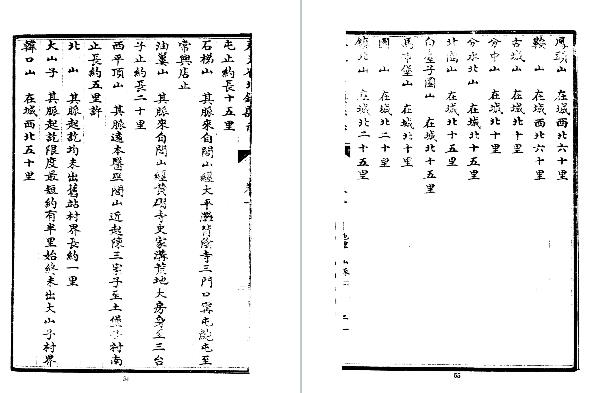 山 在城西北六十里
鞍山 在城西北六十里
古城山 在城北十里
分中山 在城北十里
分水北山 在城北十五里
北高山 在城北十五里
白 子圈山 在城北十五里
馬 堡山 在城北十里
圈山 在城北二十里
北山 在城北二十五里
地理 山脈
65
屯止約長十五里
石梯山 其脈來自閭山經大平 背陰寺三門口 屯 屯至
常興店止
油簍山 其脈來自閭山經黄 寺史家溝荒地大房身至三台
子止約長二十里
西平頂山 其脈遠本醫巫閭山近起陳三家子至土堡子村南
止長約五里許
北山 其脈起訖均未出舊站村界長約一里
大山子 其脈起訖限度最短約有半里始終未出大山子村界
韓口山 在城西北五十里